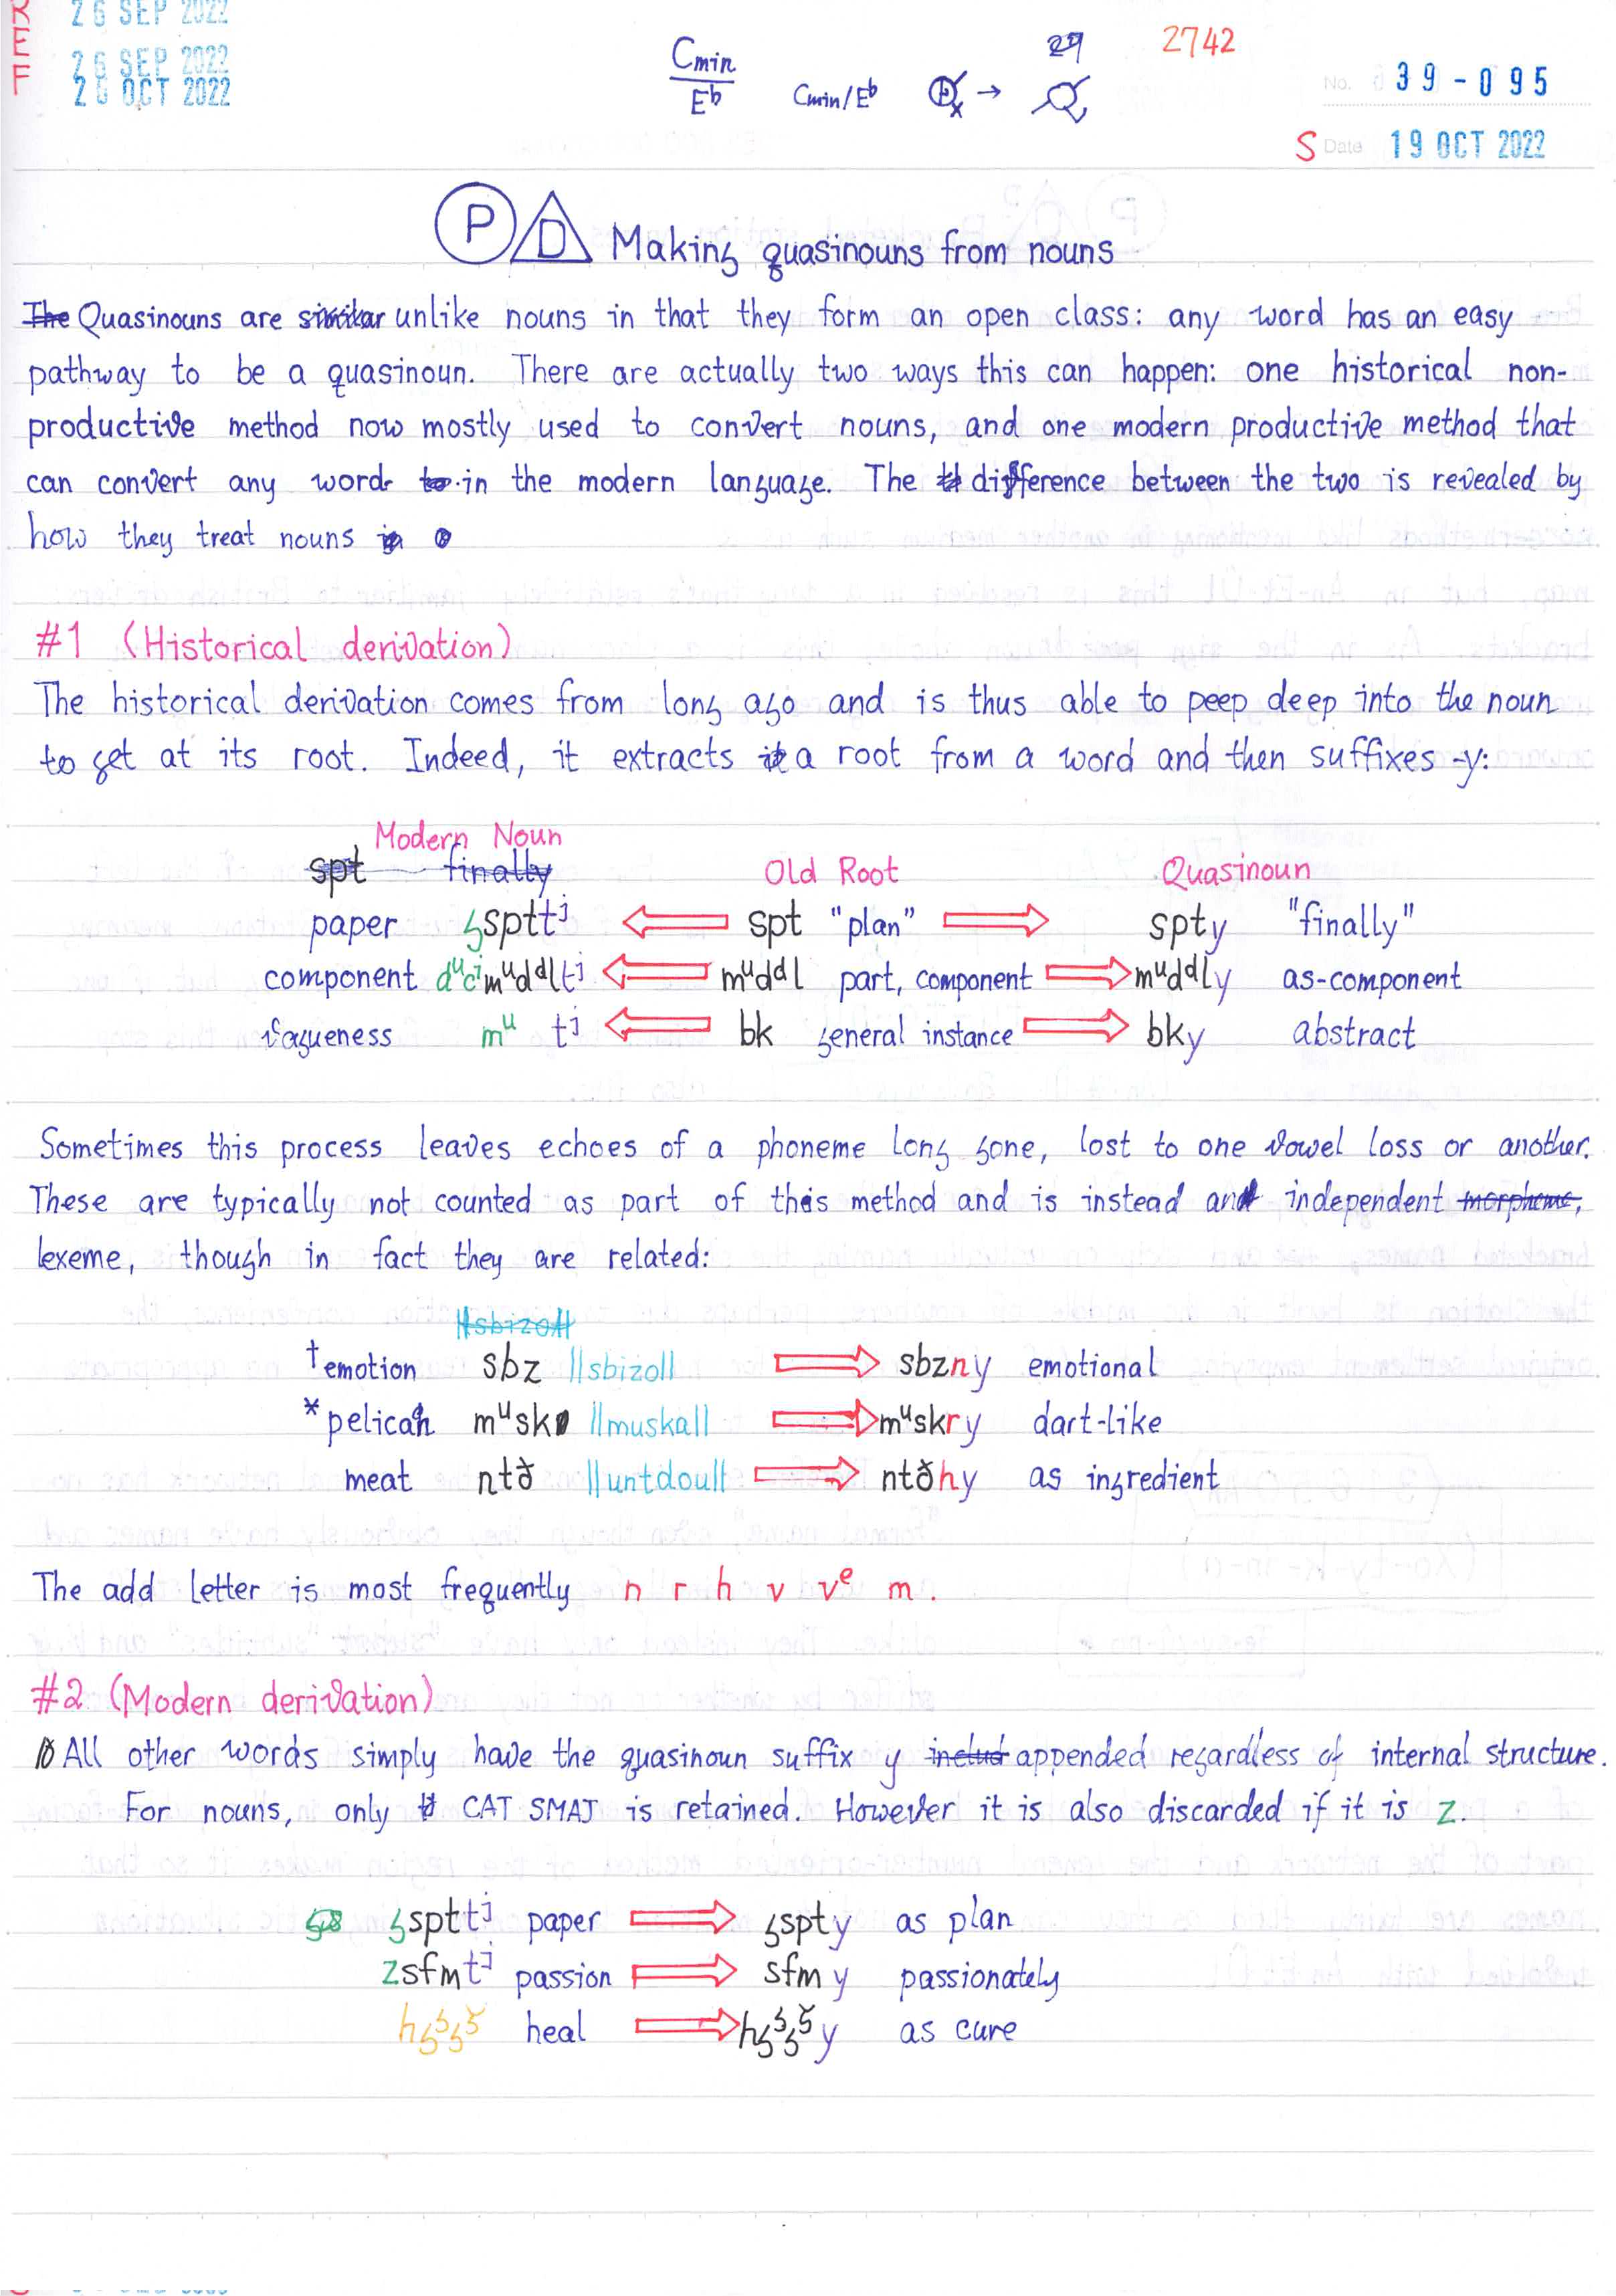 REF
26 SEP 2022
26 SEP 2022
26 OCT 2022
Cmin
Eb
Cmin/Eb
→
29
2742
No. 39-095
S Date 19 OCT 2022
P D Making quasinouns from nouns
The Quasinouns are similar unlike nouns in that they form an open class: any word has an easy
pathway to be a quasinoun. There are actually two ways this can happen: one historical non-
productive method now mostly used to convert nouns, and one modern productive method that
can convert any word to in the modern language. The difference between the two is revealed by
how they treat nouns
#1 (Historical derivation)
The historical derivation comes from long ago and is thus able to peep deep into the noun
to get at its root. Indeed, it extracts it a root from a word and then suffixes -y:
Modern Noun
spt finally Old Root Quasinoun
paper ʒspttʲ ⇐ spt "plan" ⇒ spty "finally"
component dᵘcⁱmᵘddltʲ ⇐ mᵘddl part, component ⇒ mᵘddly as-component
vagueness mᵘ tʲ ⇐ bk general instance ⇒ bky abstract
Sometimes this process leaves echoes of a phoneme long gone, lost to one vowel loss or another.
These are typically not counted as part of this method and is instead an independent morpheme,
lexeme, though in fact they are related:
||sbizo||
†emotion sbz ||sbizo|| ⇒ sbzny emotional
*pelican mᵘsk ||muska|| ⇒ mᵘskry dart-like
meat ntð ||untdou|| ⇒ ntðhy as ingredient
The add letter is most frequently n r h v vᵉ m.
#2 (Modern derivation)
All other words simply have the quasinoun suffix y includ appended regardless of internal structure.
For nouns, only CAT SMAJ is retained. However it is also discarded if it is z.
ʒspttʲ paper ⇒ ʒspty as plan
zsfmtʲ passion ⇒ sfmy passionately
heal ⇒ as cure